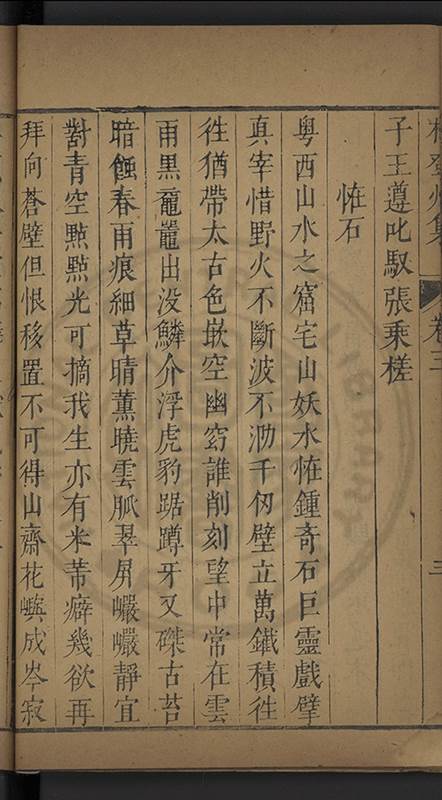 卷三
三
子王遵叱馭張乘槎
恠石
粵西山水之窟宅山妖水恠鍾奇石巨靈戲擘
真宰惜野火不斷波不泐千仞壁立萬鐵積徃
徃猶帶太古色嵌空幽窈誰削刻望中常在雲
雨黑黿鼉出没鱗介浮虎豹踞蹲牙又磔古苔
暗蝕春雨痕細草晴薰曉雲脈翠屏巗巗靜宜
對青空㸃㸃光可摘我生亦有米芾癖幾欲再
拜向蒼壁但恨移置不可得山齋花嶼成岑寂